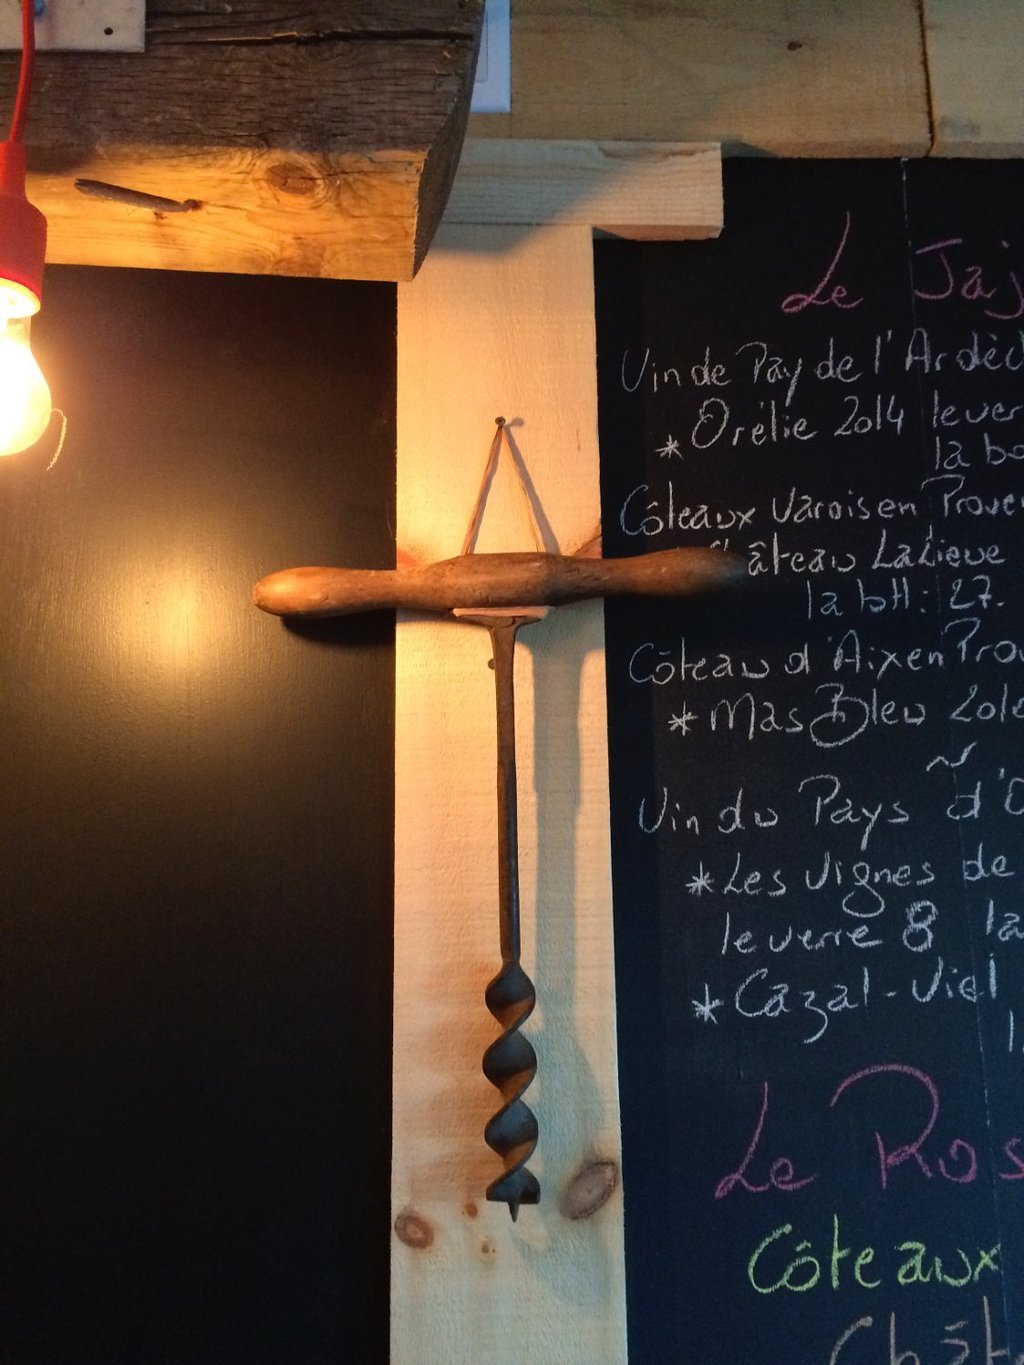 Le Jaj
Vin de Pay de l'Ardèc
* Orélie 2014 le ver
la bo
Côteaux Varois en Prove
Château LaLieue
la btl: 27.
Côteau d'Aix en Pro
* Mas Bleu 201
Vin du Pays d'O
* Les Vignes de
le verre 8 la
* Cazal-Viel
Le Ros
Côteaux
Chât